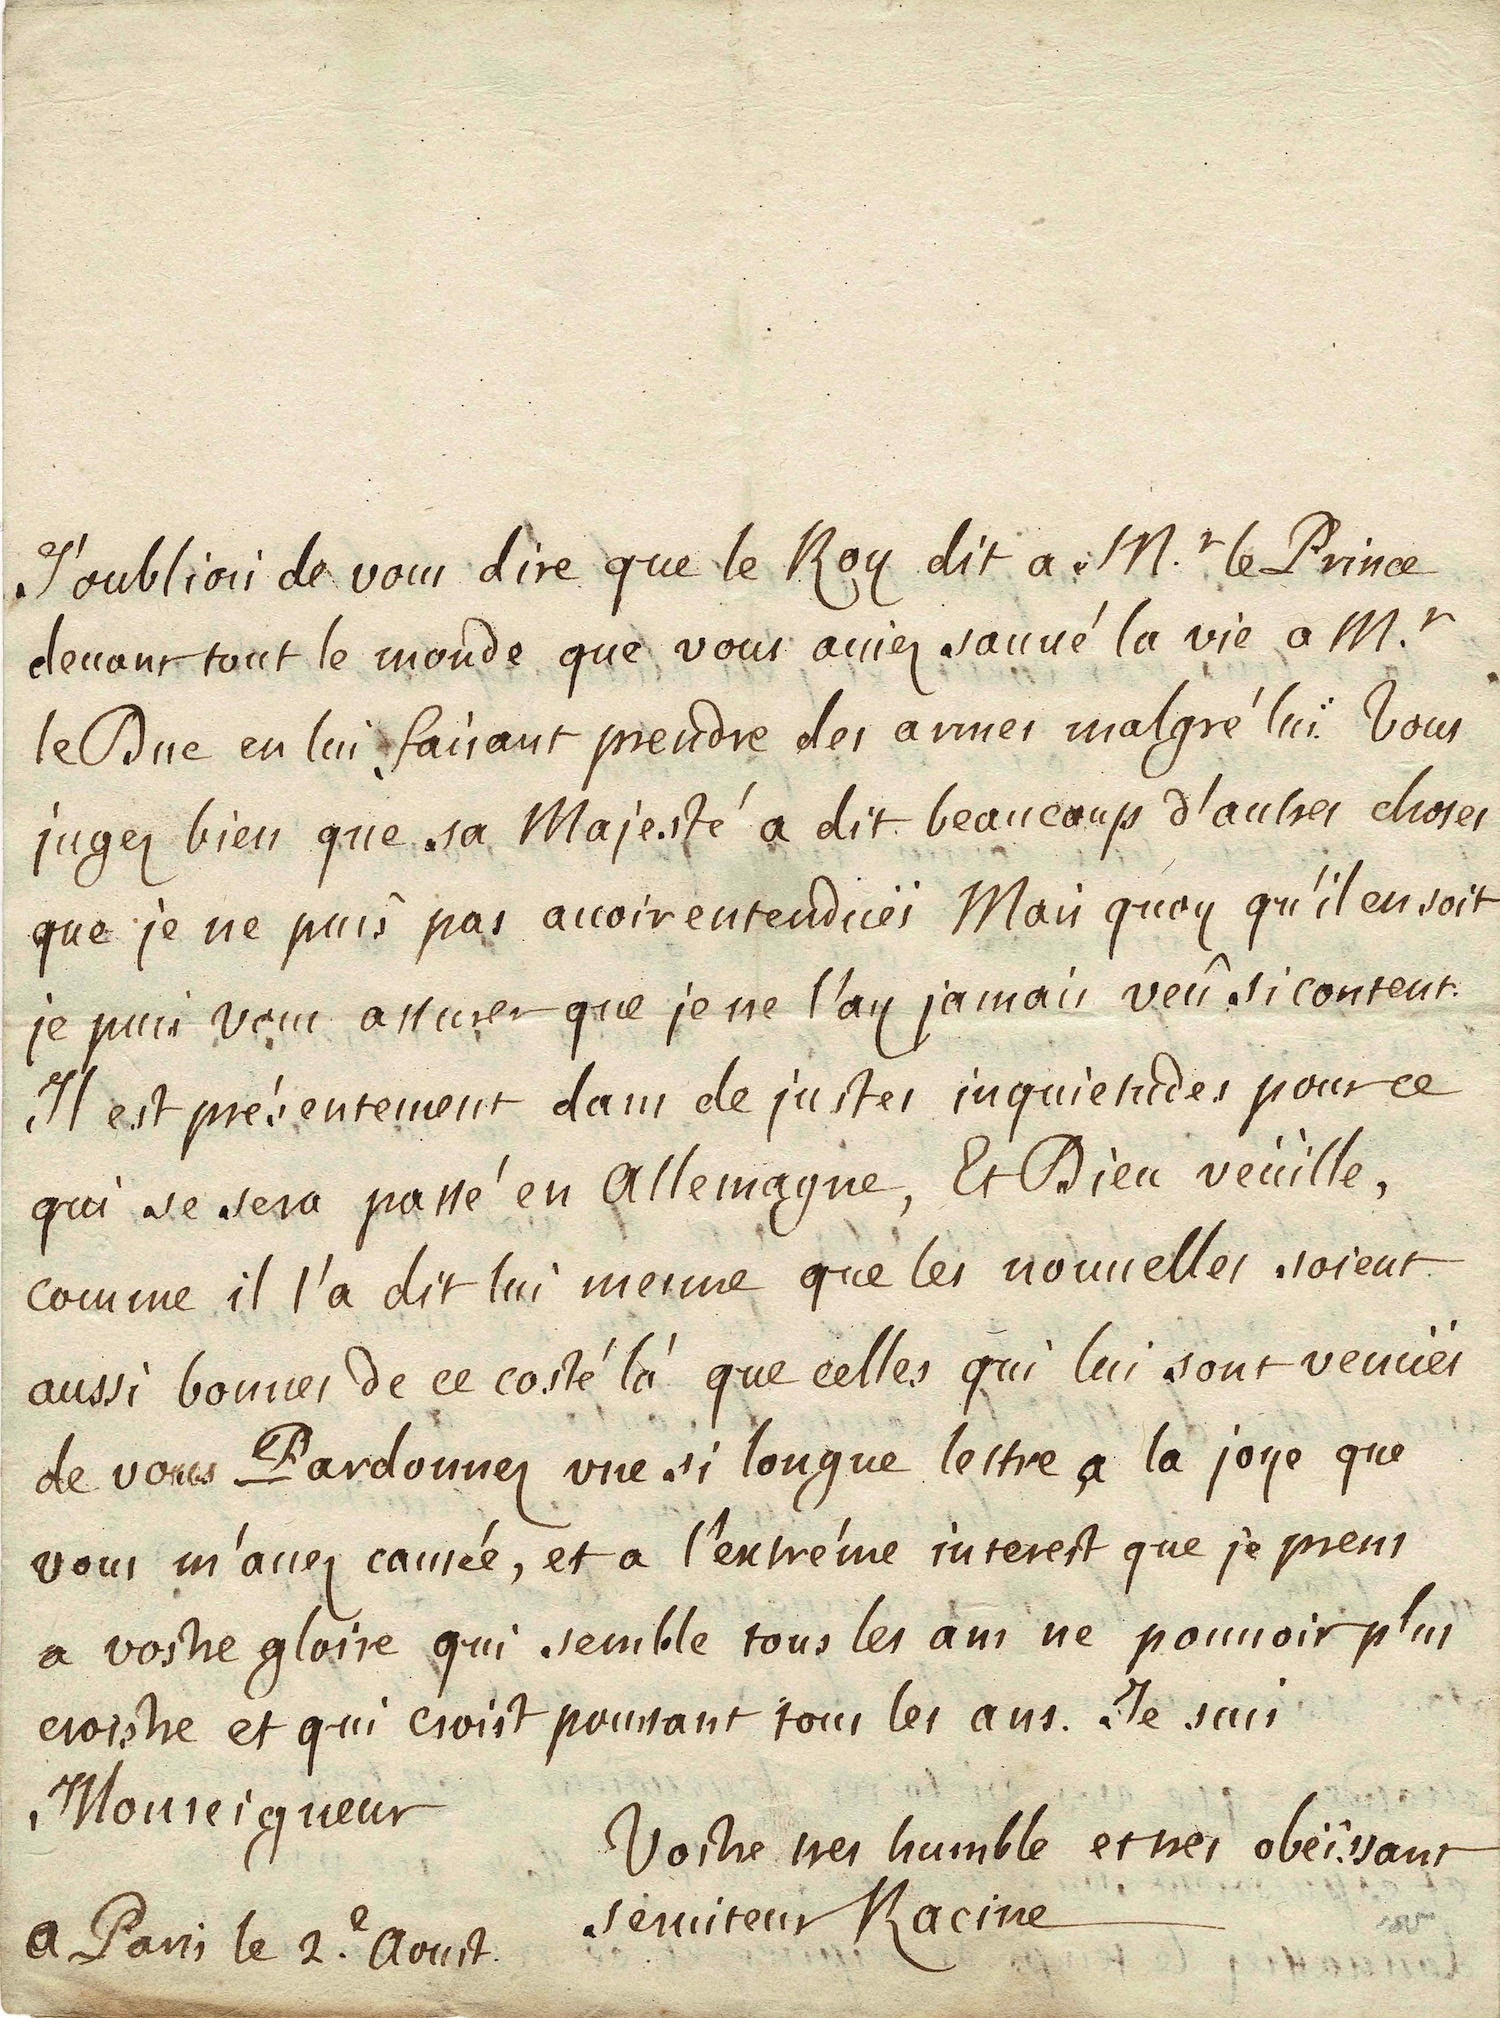 J'oubliois de vous dire que le Roy dit a M.r le Prince
deuant tout le monde que vous auiez sauué la vie a M.r
le Duc en lui faisant prendre des armes malgré luï. Vous
jugez bien que sa Majesté a dit beaucoup d'autres choses
que je ne puis pas auoir entenduës Mais quoy qu'il en soit
je puis vous assurer que je ne l'ay jamais veû si content.
Il est présentement dans de justes inquietudes pour ce
qui se sera passé en Allemagne, Et Dieu veüille,
comme il l'a dit lui mesme que les nouuelles soient
aussi bonnes de ce costé là que celles qui lui sont venuës
de vous Pardonnez vne si longue lettre a la joye que
vous m'auez causée, et a l'extréme interest que je prens
a vostre gloire qui semble tous les ans ne pouuoir plus
croistre et qui croist pourtant tous les ans. Je suis
Monseigneur
Vostre tres humble et tres obéïssant
seruiteur Racine
a Paris le 2.e Aoust.